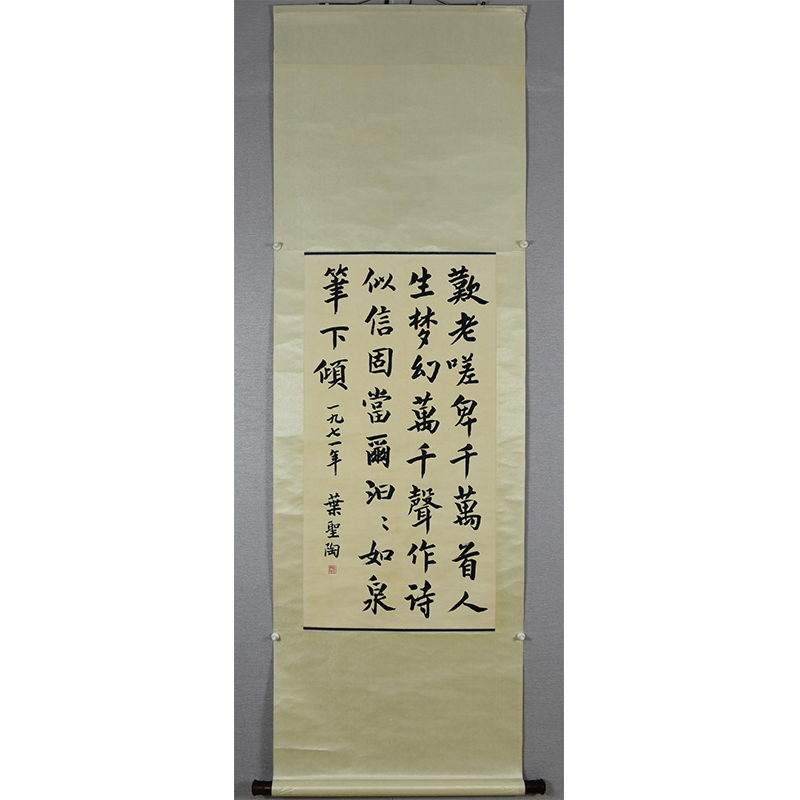 歎老嗟卑千萬首人
生梦幻萬千聲作诗
似信固當爾汩〻如泉
筆下傾
一九七一年 葉聖陶